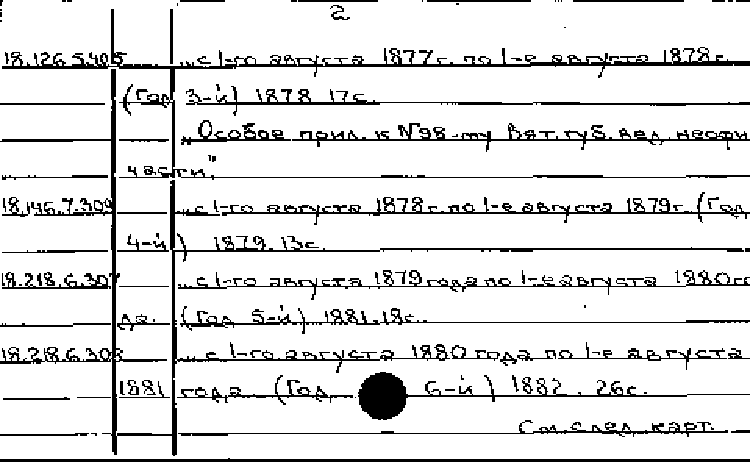 2
18.126.5.405 ...с 1-го августа 1877г. по 1-е августа 1878г.
(Год 3-й) 1878. 17с.
„Особое прил. к №98-му Вят. губ. вед. неофи
части".
18.146.7.309 ...с 1-го августа 1878г. по 1-е августа 1879г. (Год
4-й) 1879. 13с.
18.218.6.307 ...с 1-го августа 1879 года по 1-е августа 1880го
да. (Год 5-й) 1881. 18с.
18.218.6.308 ...с 1-го августа 1880 года по 1-е августа
1881 года (Год 6-й) 1882. 26с.
См. след. карт.